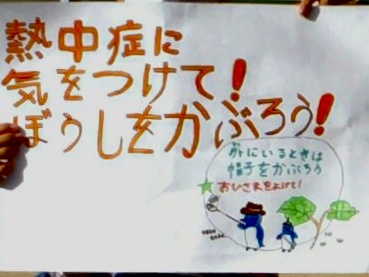 熱中症に
気をつけて!
ぼうしをかぶろう!
外にいるときは
帽子をかぶろう
おひさまをよけて!